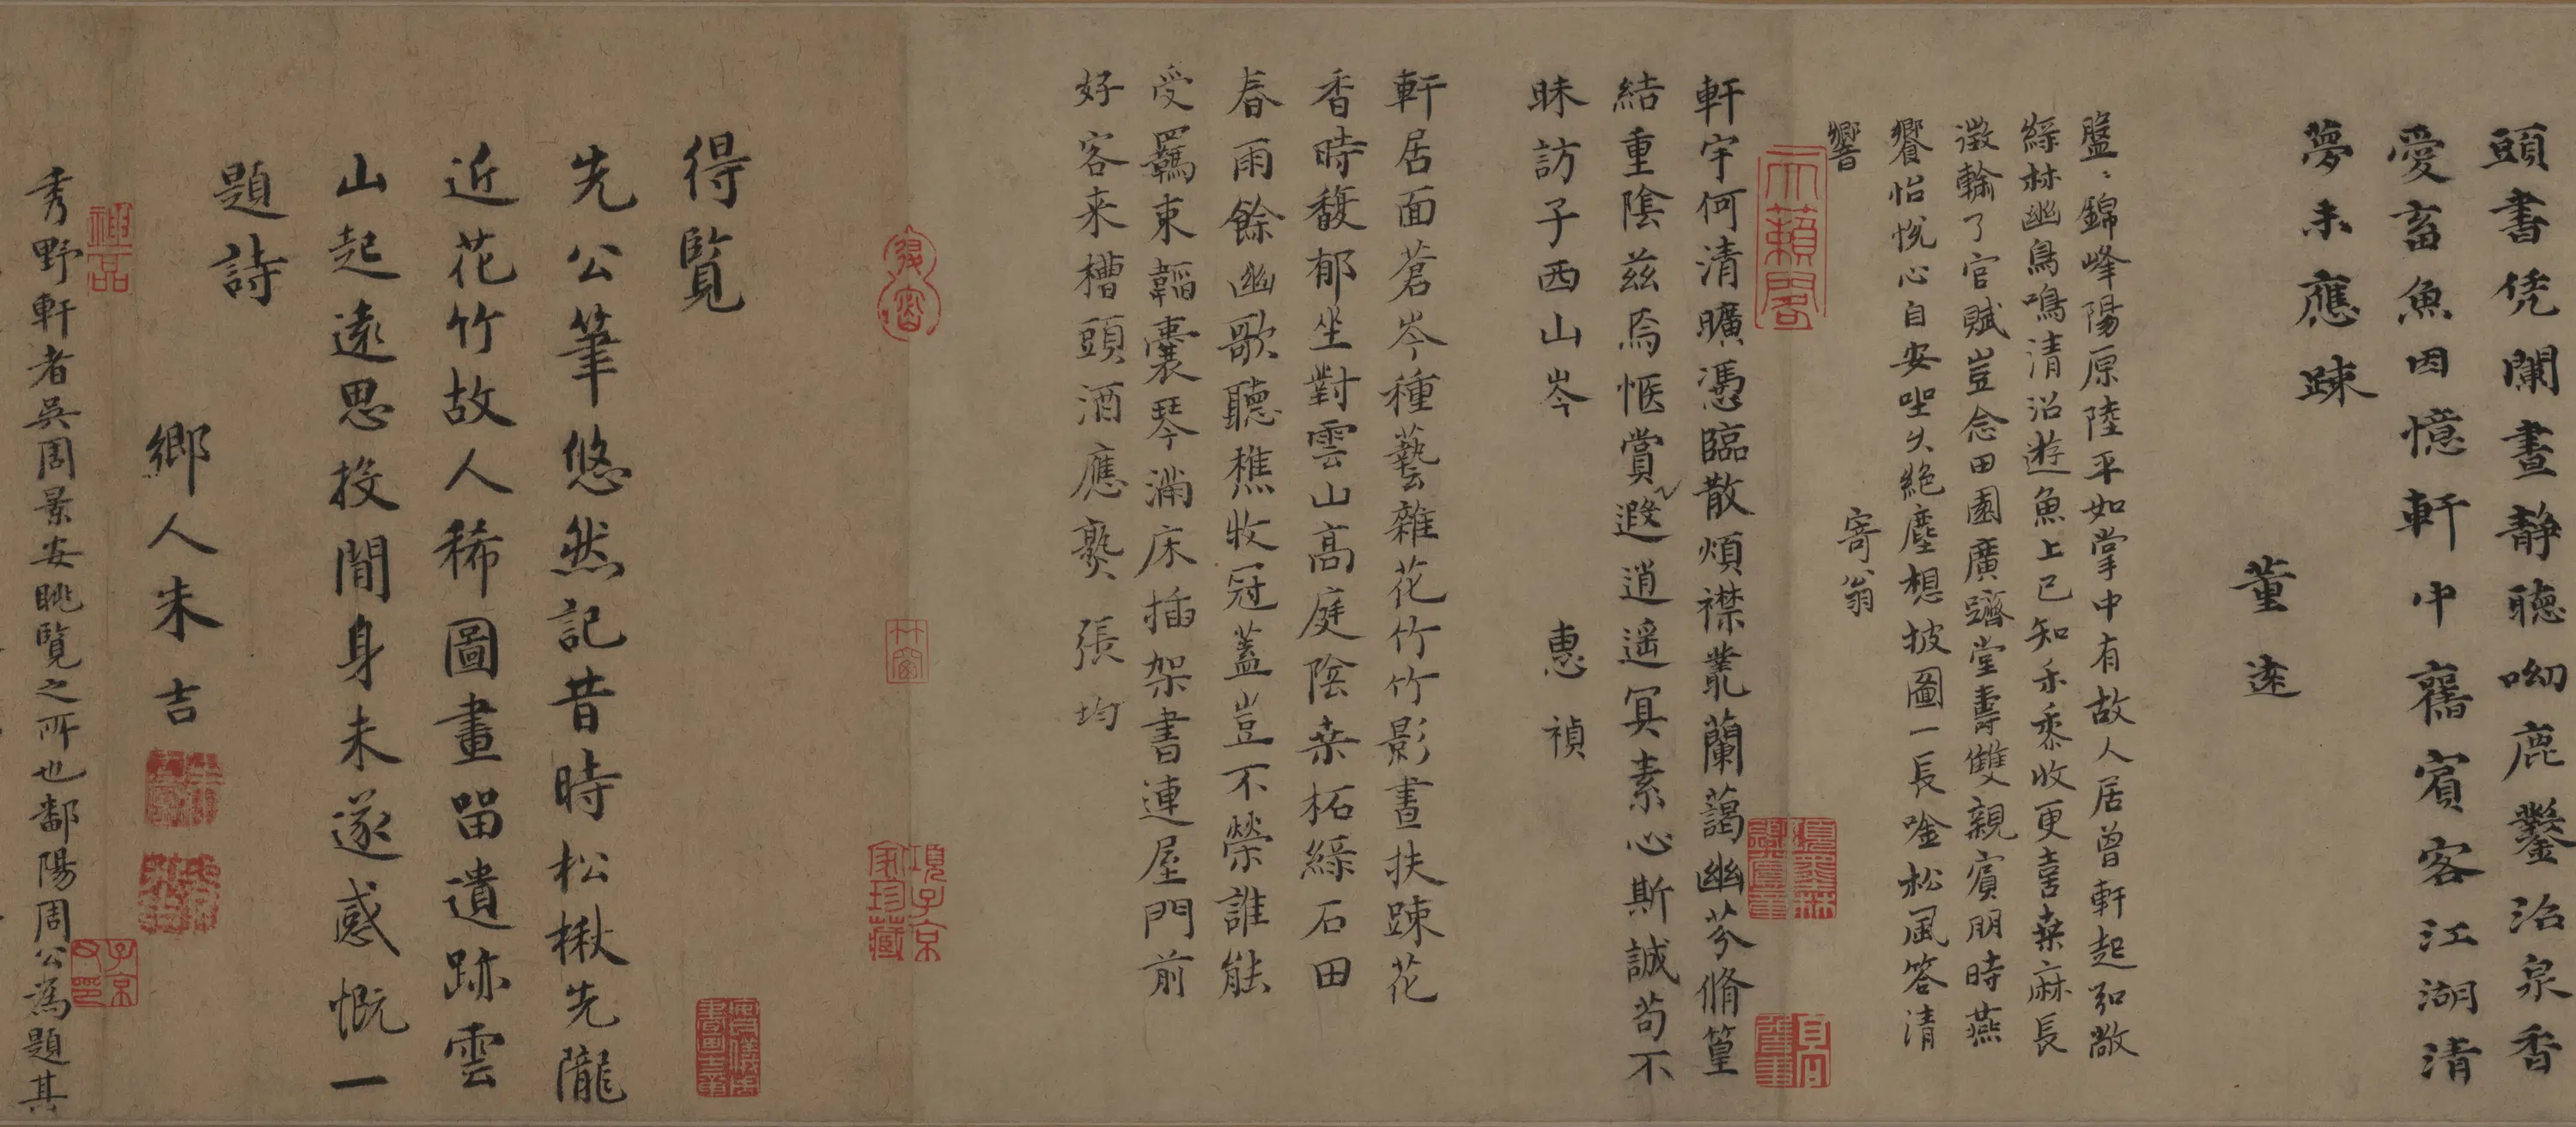 頭書凭闌晝静聴呦鹿鑿沼泉香
愛畜魚因憶軒中舊賓客江湖清
夢未應踈
董遠
盤〻錦峰陽原陸平如掌中有故人居曾軒起弘敞
緑林幽鳥鳴清沼遊魚上已知禾黍收更喜桒麻長
徴輸了官賦豈念田園廣躋堂壽雙親賓朋時燕
饗怡悅心自安坐久絶塵想披圖一長唫松風答清
響
寄翁
軒宇何清曠憑臨散煩襟叢蘭藹幽芬脩篁
結重陰茲焉惬賞遐逍遥冥素心斯誠苟不
昧訪子西山岑
惠禎
軒居面蒼岑種藝雜花竹竹影晝扶踈花
香時馥郁坐對雲山高庭陰桒柘緑石田
春雨餘幽歌聽樵牧冠蓋豈不榮誰能
受羈束韜囊琴滿床插架書連屋門前
好客来槽頭酒應熟
張均
得覧
先公筆悠然記昔時松楸先隴
近花竹故人稀圖畫留遺跡雲
山起遠思投閒身未遂感慨一
題詩
鄉人朱吉
秀野軒者吳周景安眺覽之所也鄱陽周公為題其
天籟閣
神品
項子京家珍藏
子京父印
項墨林鑑賞章